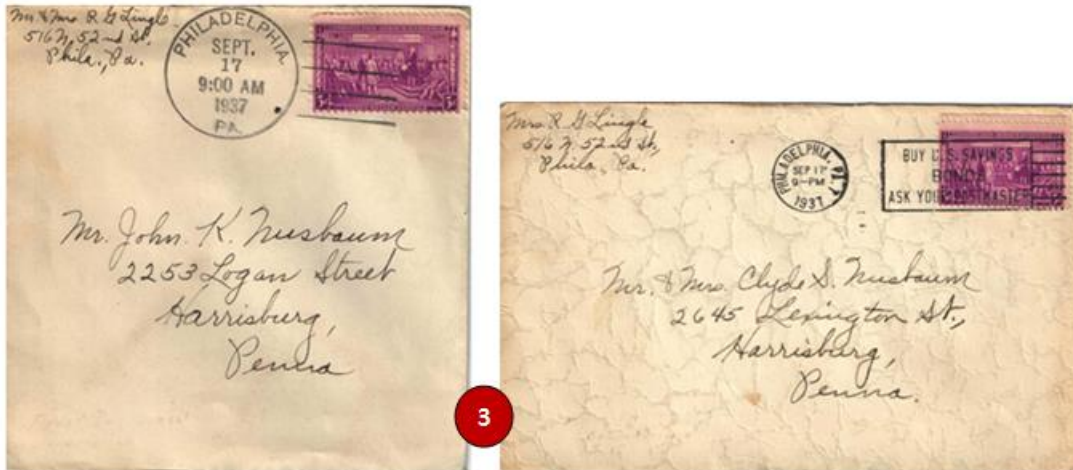 Mr. & Mrs. R. G. Lingle
516 N. 52nd St.
Phila., Pa.
PHILADELPHIA
SEPT.
17
9:00 AM
1937
PA.
3 3
Mr. John K. Nusbaum
2253 Logan Street
Harrisburg,
Penna
Mrs R. G. Lingle
516 N. 52nd St.,
Phila., Pa.
PHILADELPHIA, PA.
SEP 17
9-PM
1937
BUY U.S. SAVINGS
BONDS
ASK YOUR POSTMASTER
Mr. & Mrs. Clyde S. Nusbaum
2645 Lexington St.,
Harrisburg,
Penna.
3